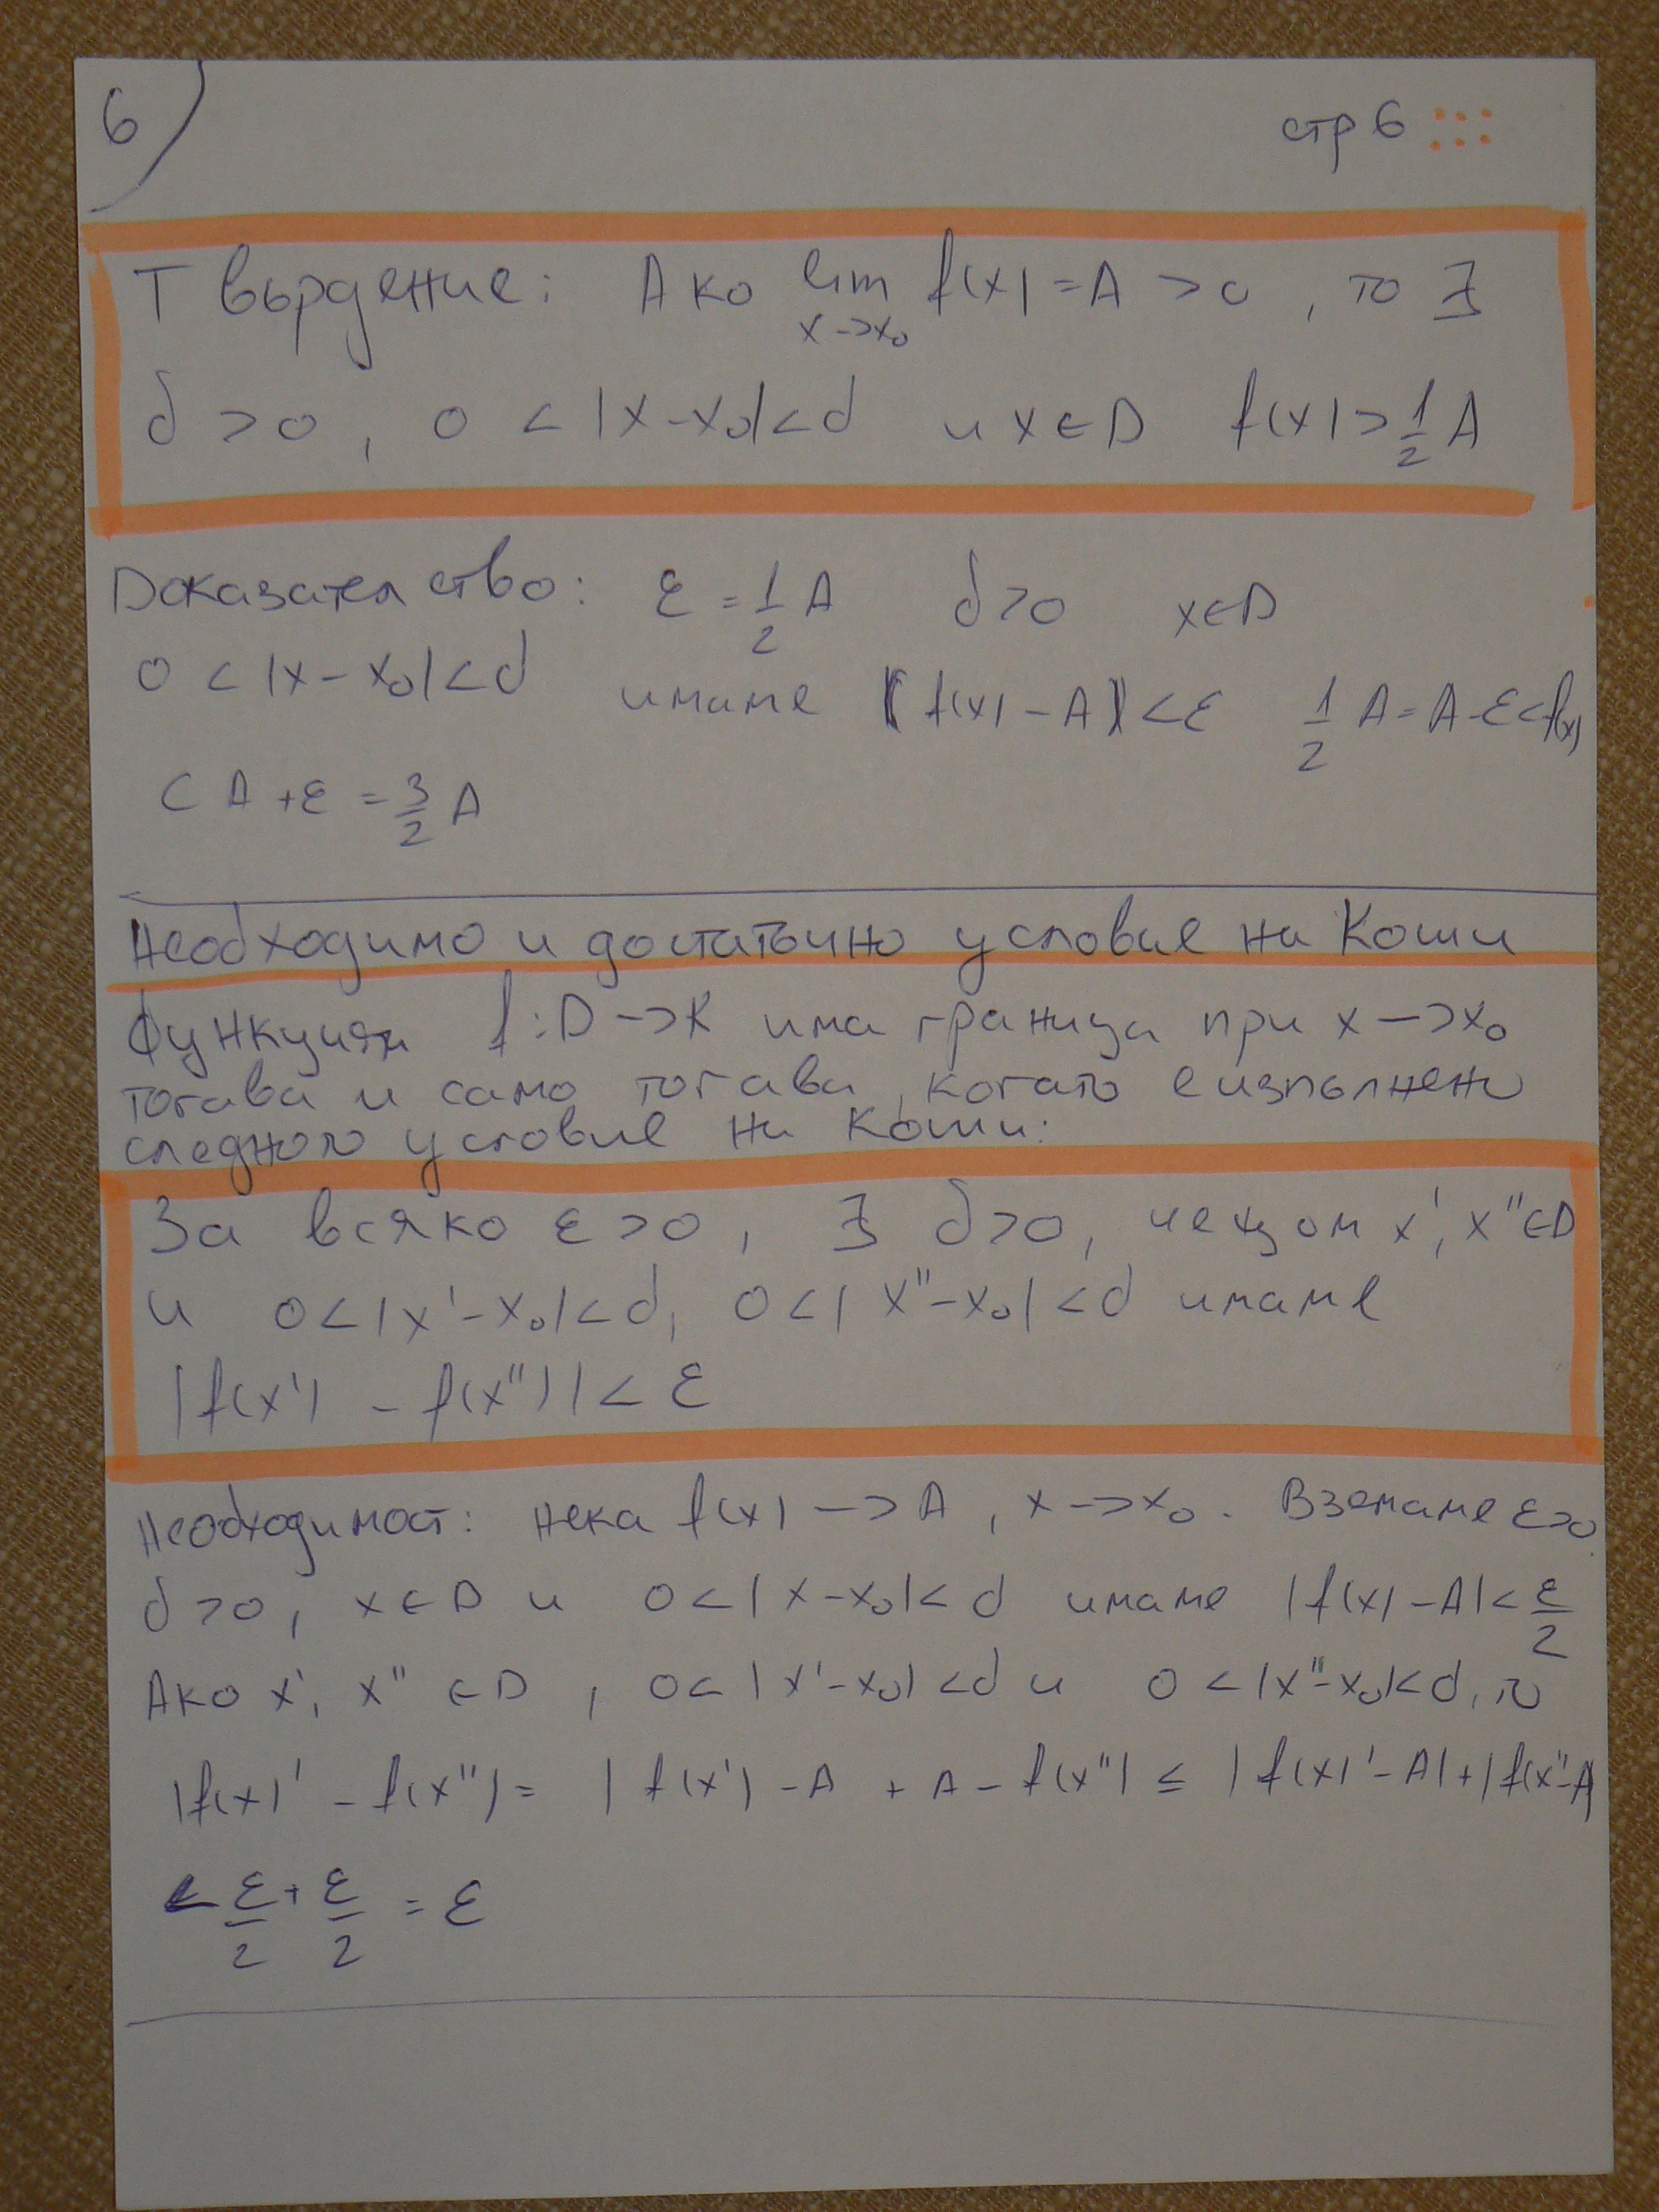 6) стр 6
Твърдение: Ако lim f(x) = A > 0, то ∃
x->x₀
δ > 0, 0 < |x - x₀| < δ и x ∈ D f(x) > 1/2 A
Доказателство: ε = 1/2 A δ > 0 x ∈ D
0 < |x - x₀| < δ имаме |f(x) - A| < ε 1/2 A = A - ε < f(x)
< A + ε = 3/2 A
Необходимо и достатъчно условие на Коши
Функцията f: D -> R има граница при x -> x₀
тогава и само тогава, когато е изпълнено
следното условие на Коши:
За всяко ε > 0, ∃ δ > 0, че щом x', x'' ∈ D
и 0 < |x' - x₀| < δ, 0 < |x'' - x₀| < δ имаме
|f(x') - f(x'')| < ε
Необходимост: Нека f(x) -> A, x -> x₀. Вземаме ε > 0
δ > 0, x ∈ D и 0 < |x - x₀| < δ имаме |f(x) - A| < ε/2
Ако x', x'' ∈ D, 0 < |x' - x₀| < δ и 0 < |x'' - x₀| < δ, то
|f(x)' - f(x'')| = |f(x') - A + A - f(x'')| ≤ |f(x)' - A| + |f(x'' - A|
< ε/2 + ε/2 = ε